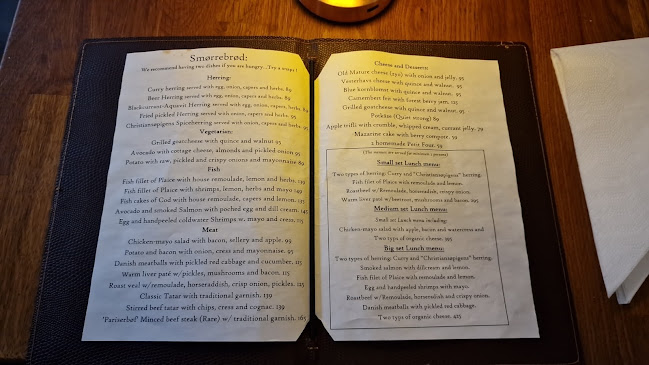 Smørrebrød:
We recommend having two dishes if you are hungry...Try a snaps !
Herring:
Curry herring served with egg, onion, capers and herbs. 89
Beer Herring served with egg, onion, capers and herbs.
Blackcurrant-Aquavit Herring served with egg, onion, capers, herbs.
Fried pickled Herring served with onion, capers and herbs. 95
Christianspigens Spiceherring served with onion, capers and herbs. 95
Vegetarian:
Grilled goatcheese with quince and walnut 95
Avocado with cottage cheese, almonds and pickled onion 95
Potato with raw, pickled and crispy onions and mayonnaise 89
Fish
Fish fillet of Plaice with house remoulade, lemon and herbs. 139
Fish fillet of Plaice with shrimps, lemon, herbs and mayo 149
Fish cakes of Cod with house remoulade, capers and lemon. 125
Avocado and smoked Salmon with poched egg and dill cream. 145
Egg and handpeeled coldwater Shrimps w. mayo and cress. 125
Meat
Chicken-mayo salad with bacon, sellery and apple. 99
Potato and bacon with onion, cress and mayonnaise. 95
Danish meatballs with pickled red cabbage and cucumber. 115
Warm liver paté w/pickles, mushrooms and bacon. 115
Roast veal w/remoulade, horseraddish, crisp onion, pickles. 125
Classic Tatar with traditional garnish. 139
Stirred beef tatar with chips, cress and cognac. 139
'Pariserbøf' Minced beef steak (Rare) w/ traditional garnish. 165
Cheese and Desserts
Old Mature cheese (2yo) with onion and jelly. 95
Vesterhavs cheese with quince and walnut. 95
Blue kornblomst with quince and walnut. 95
Camembert fen with forest berry jam. 125
Grilled goatcheese with quince and walnut. 95
Potkäse (Quiet strong) 89
Apple trifli with crumble, whipped cream, currant jelly. 79
Mazarine cake with berry compote. 59
2 homemade Petit Four. 59
(The menues are served for minimum 2 persons)
Small set Lunch menu:
Two types of herring: Curry and "Christianspigens" herring.
Fish filet of Plaice with remoulade and lemon.
Roastbeef w/Remoulade, horseradish, crispy onion.
Warm liver pate w/beetroot, mushrooms and bacon. 295
Medium set Lunch menu:
Small set Lunch menu including:
Chicken-mayo salad with apple, bacon and watercress and
Two typs of organic cheese. 395
Big set Lunch menu:
Two types of herring: Curry and "Christianspigens" herring.
Smoked salmon with dillcream and lemon.
Fish filet of Plaice with remoulade and lemon.
Egg and handpeeled shrimp with mayo.
Roastbeef w/Remoulade, horseradish and crispy onion.
Danish meatballs with pickled red cabbage.
Two typs of organic cheese. 425